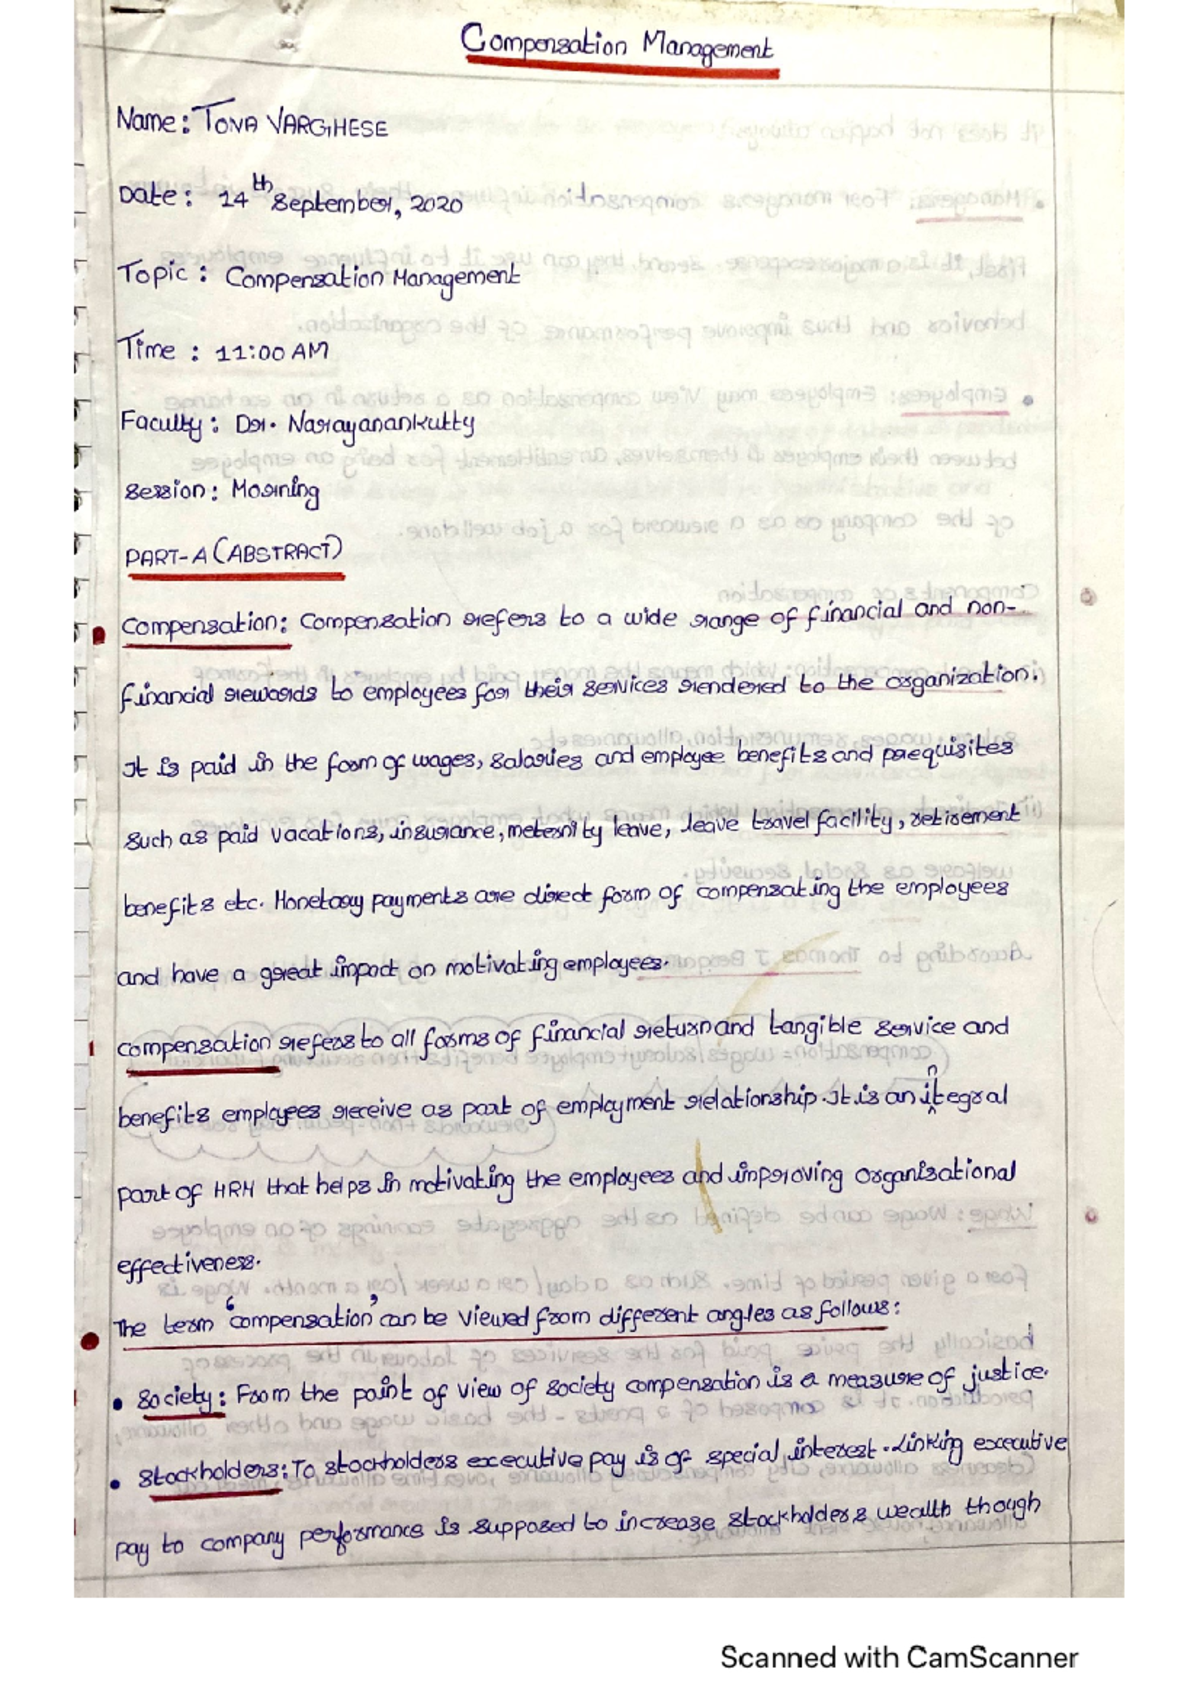 Compensation Management
Name: TONA VARGHESE
Date: 14th September, 2020
Topic: Compensation Management
Time: 11:00 AM
Faculty: Dr. Narayanankutty
Session: Morning
PART-A (ABSTRACT)
Compensation: Compensation refers to a wide range of financial and non-
financial rewards to employees for their services rendered to the organization.
It is paid in the form of wages, salaries and employee benefits and prequisites
such as paid vacations, insurance, meternity leave, leave travel facility, retirement
benefits etc. Monetary payments are direct form of compensating the employees
and have a great impact on motivating employees.
1 compensation refers to all forms of financial return and tangible service and
benefits employees receive as part of employment relationship. It is an integral
part of HRM that helps in motivating the employees and improving organisational
effectiveness.
The term 'compensation' can be viewed from different angles as follows:
• Society: From the point of view of society compensation is a measure of justice.
• Stockholders: To stockholders executive pay is of special interest. Linking executive
pay to company performance is supposed to increase stockholders wealth though
Scanned with CamScanner